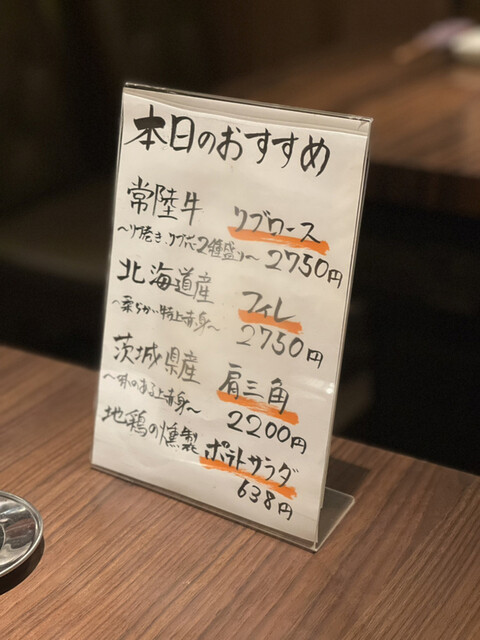 本日のおすすめ
常陸牛 リブロース
〜リブ焼き、リブ芯2種盛り〜 2750円
北海道産 フィレ
〜柔らかい特上赤身〜 2750円
茨城県産 肩三角
〜味のある上赤身〜 2200円
地鶏の燻製 ポテトサラダ
638円